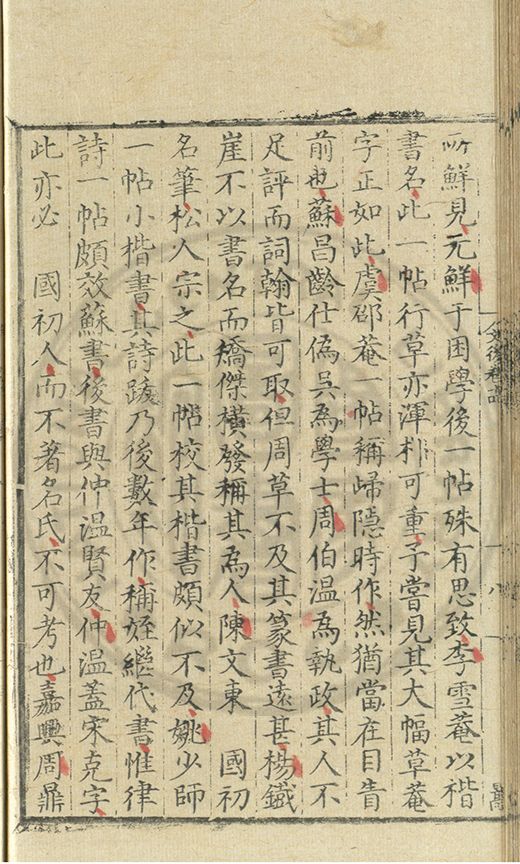 所鮮見元鮮于困學後一帖殊有思致李雪菴以楷
書名此一帖行草亦渾朴可重予嘗見其大幅草菴
字正如此虞邵菴一帖稱歸隱時作然猶當在目眚
前也蘇昌齡仕偽吳為學士周伯溫為執政其人不
足評而詞翰皆可取但周草不及其篆書遠甚楊鐵
崖不以書名而矯傑橫發稱其為人陳文東 國初
名筆松人宗之此一帖校其楷書頗似不及姚少師
一帖小楷書其詩跋乃後數年作稱姪繼代書惟律
詩一帖頗效蘇書後書與仲溫賢友仲溫蓋宋克字
此亦必 國初人而不著名氏不可考也嘉興周鼎